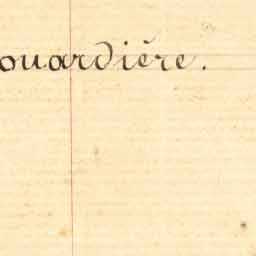 ouardière.